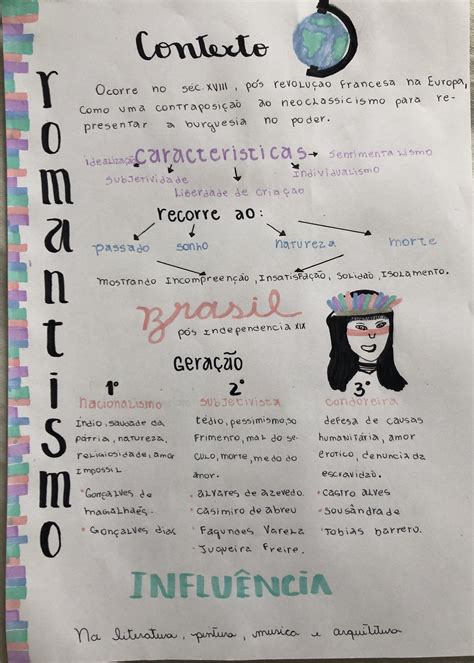 romantismo
Contexto
Ocorre no séc. XVIII, pós revolução francesa na Europa,
como uma contraposição ao neoclassicismo para re-
presentar a burguesia no poder.
idealização características → sentimentalismo
subjetividade individualismo
liberdade de criação
recorre ao:
passado sonho natureza morte
mostrando incompreenção, insatisfação, solidão, isolamento.
Brasil
pós independencia XIX
Geração
1° 2° 3°
nacionalismo subjetivista condoreira
índio, saudade da tédio, pessimismo, so defesa de causas
pátria, natureza, frimento, mal do sé humanitária, amor
religiosidade, amor culo, morte, medo do erotico, denuncia da
impossil amor. escravidão.
• Gonçalves de • alvares de azevedo. • castro alves
magalhães. • casimiro de abreu • sousândrade
• Gonçalves dias • Fagundes Varela • Tobias barrero.
• Juqueira Freire.
INFLUÊNCIA
Na literatura, pintura, musica e arquitetura